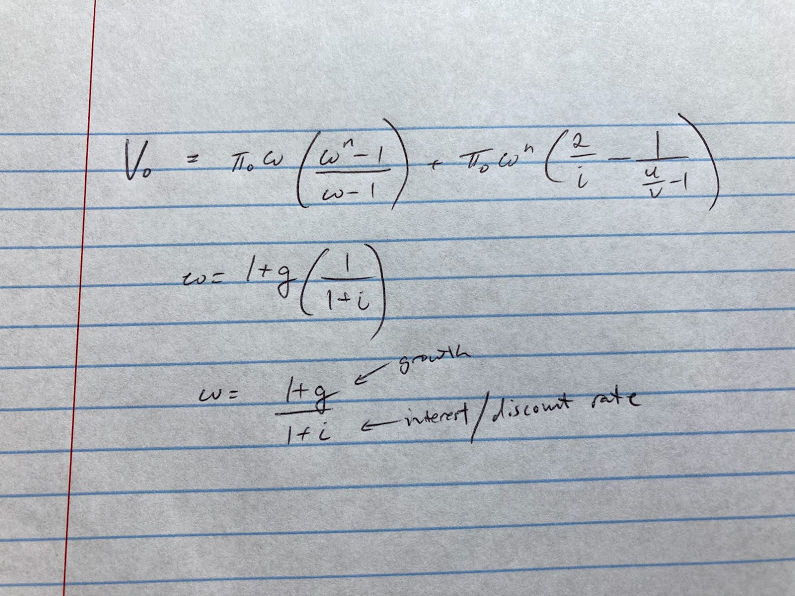 V₀ = π₀ω((ωⁿ-1)/(ω-1)) + π₀ωⁿ(2/i - 1/(u/v -1))
ω= 1+g(1/(1+i))
growth
ω= (1+g)/(1+i)
interest/discount rate